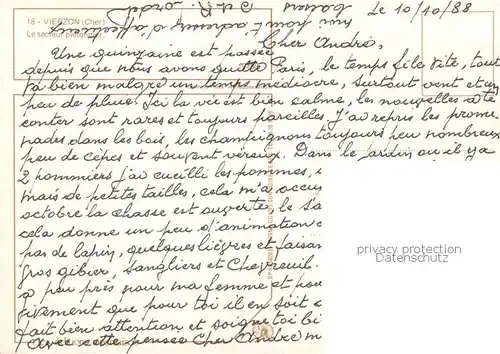 18 - VIERZON (Cher)
Le secteur piétonnier
Le 10/10/88
Cher André,
Une quinzaine est passée
depuis que nous avons quitté Paris, le temps file vite, tout
va bien malgré un temps médiocre, surtout vent et un
peu de pluie. Ici la vie est bien calme, les nouvelles a te
conter sont rares et toujours pareilles. J'ai repris les prome
nades dans les bois, les champignons toujours peu nombreux
peu de cèpes et souvent véreux. Dans le jardin ou il y a
2 pommiers j'ai cueilli les pommes,
mais de petites tailles, cela m'a occu
octobre la chasse est ouverte, le sa
cela donne un peu d'animation
pas de lapin, quelques lièvres et faisan
gros gibier, sangliers et Chevreuil.
a peu près pour ma femme et pou
vivement que pour toi il en soit
fait bien attention et soigne toi bi
Avec cette pensée Cher André m
privacy protection